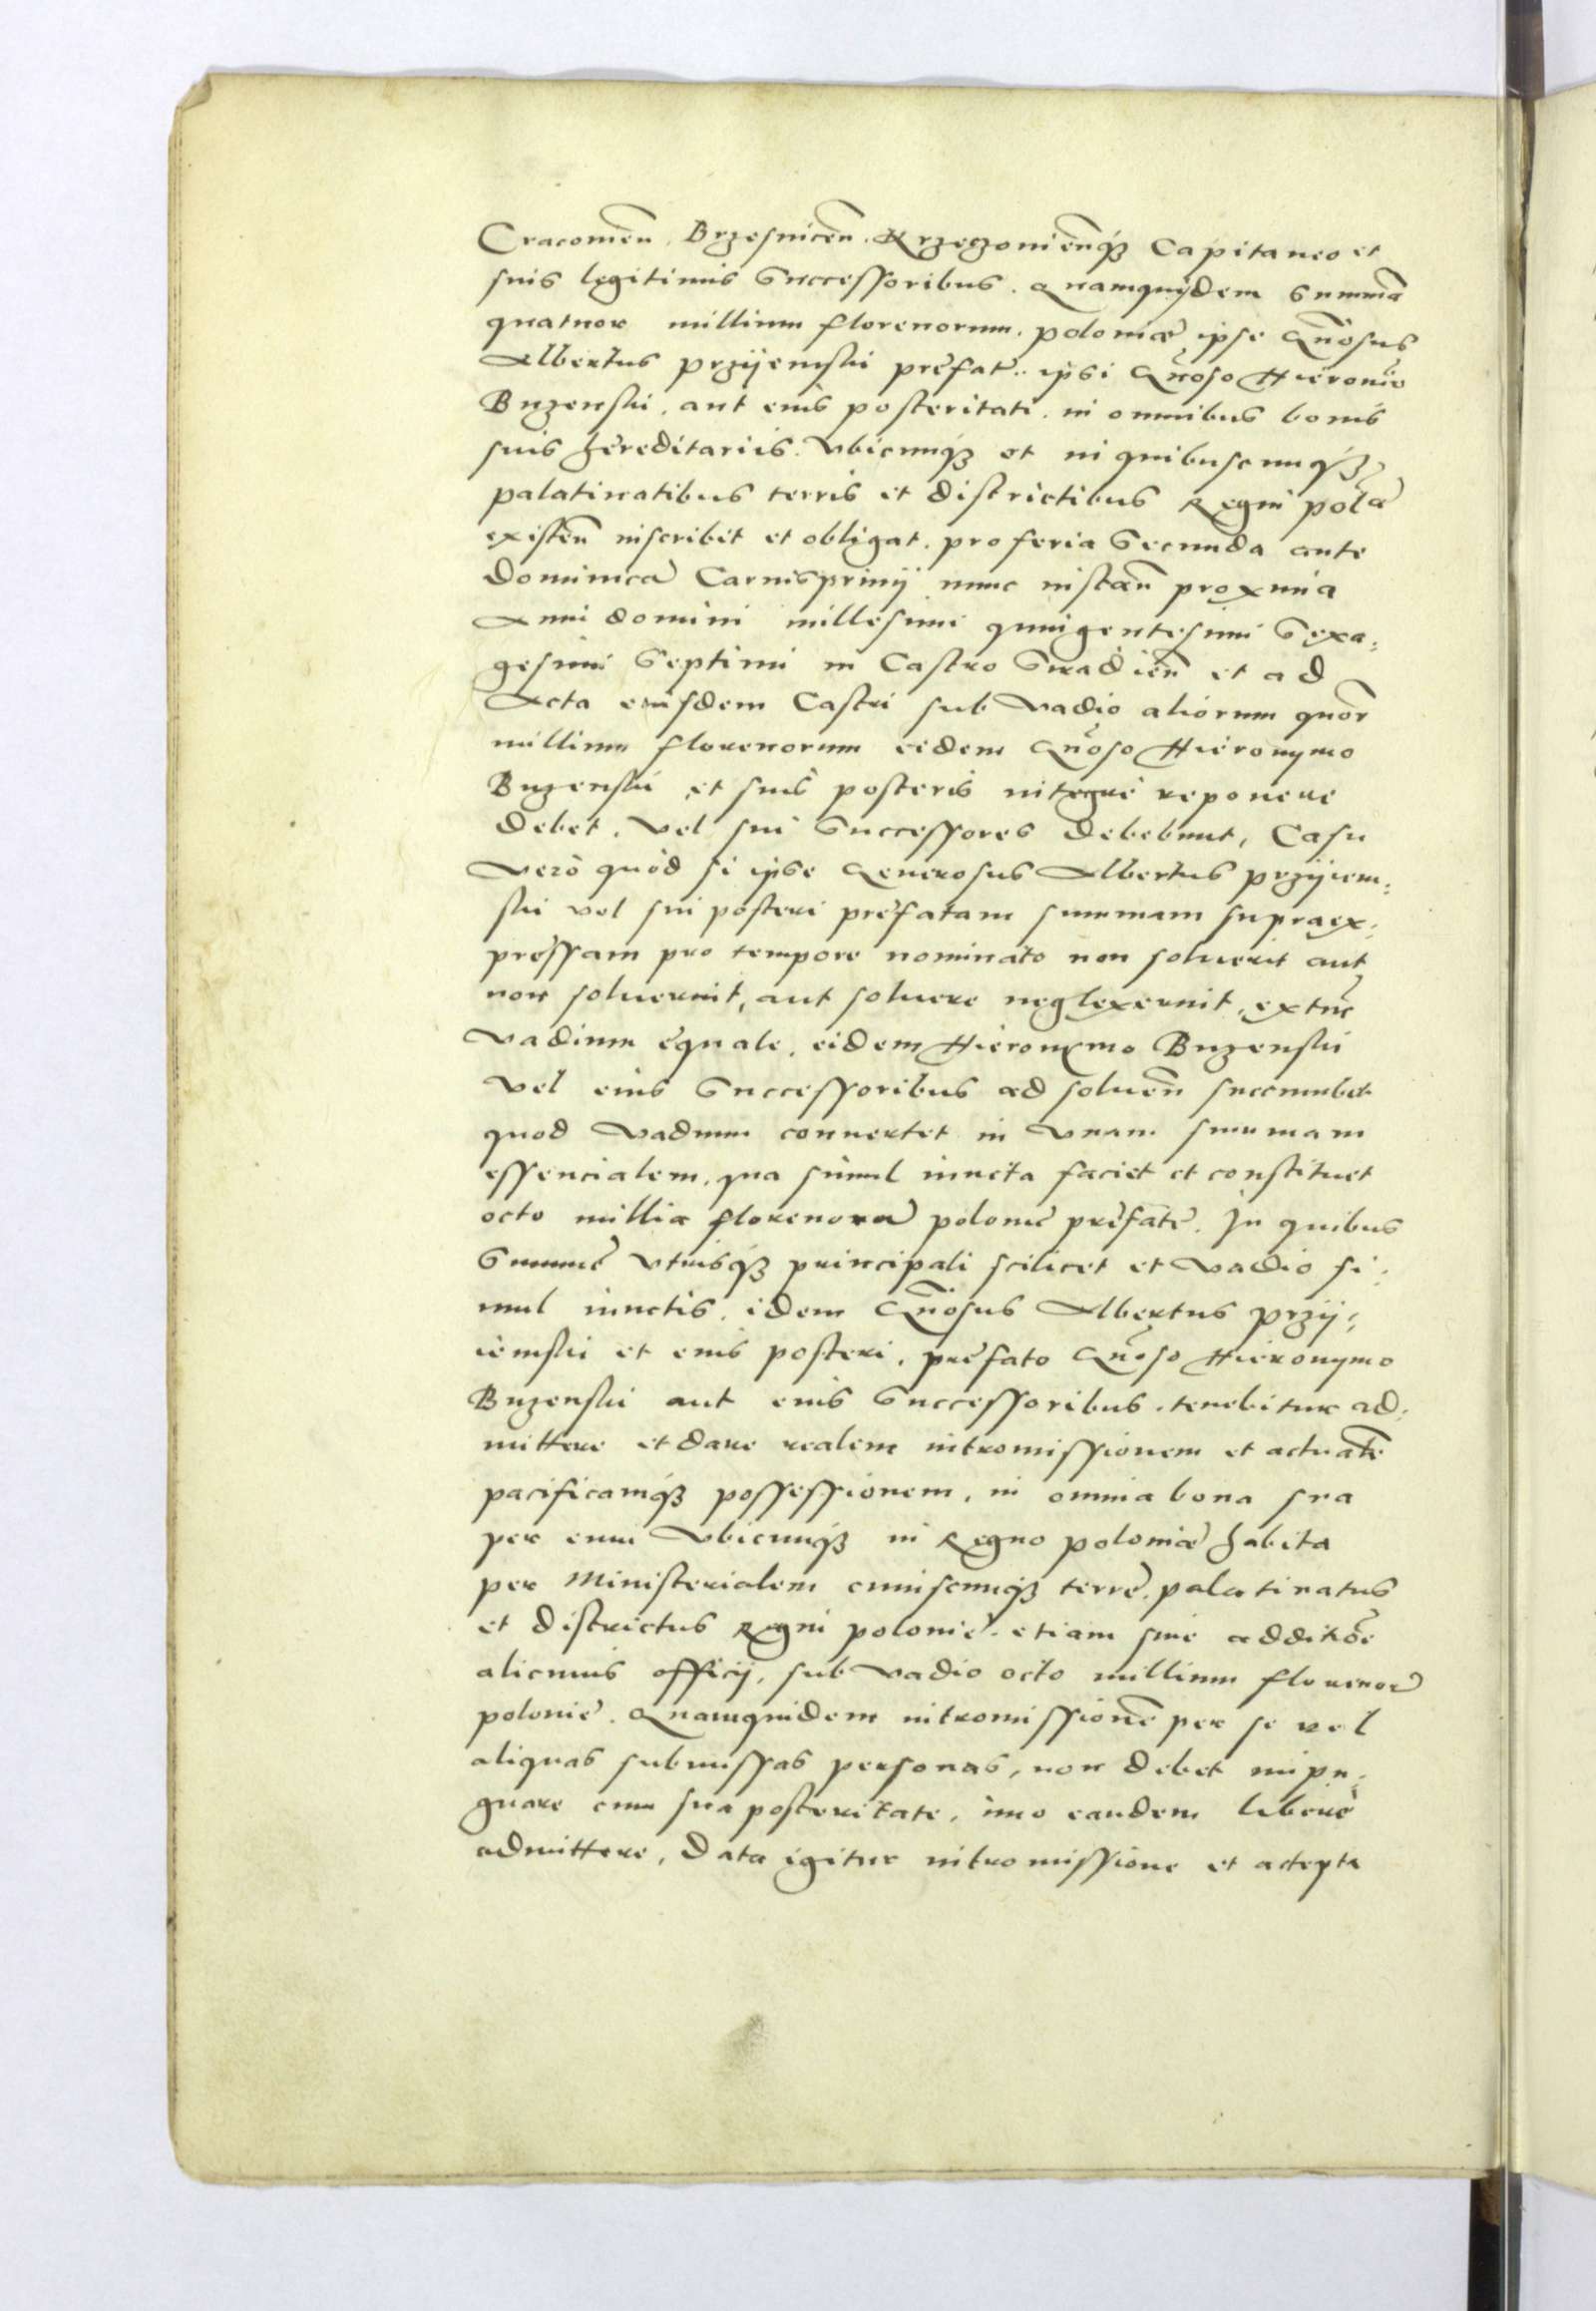 Cracouien̄. Brzesnicen̄. Krzeczonien̄q₃ Capitaneo et
suis legitimis Successoribus. Quamquidem Summā
quatuor millium florenorum. poloniæ ipse Gn̄osus
Albertus przÿemski prefat9. ipsi Gn̄oso Hieronīo
Buzenski. aut eius posteritati. in omnibus bonis
suis hereditariis. vbicunq₃ et in quibuscunq₃
palatinatibus terris et districtibus Regni pol̄æ
existen̄ inscribit et obligat. pro feria Secunda ante
dominicā Carnispriuij nunc instan̄ proxima
Anni domini millesimi quingentesimi Sexa:
gesimi Septimi in Castro Siradien̄ et ad
Acta eiusdem Castri sub vadio aliorum quor̄
millium florenorum eidem Gn̄oso Hieronymo
Buzenski et suis posteris integrè reponere
debet. vel sui Successores debebunt, Casu
verò quòd si ipse Generosus Albertus przÿiem:
ski vel sui posteri prefatam summam supraex:
pressam pro tempore nominato non soluerit aut
non soluerint, aut soluere neglexerint. extūc
vadium equale. eidem Hieronymo Buzenski
vel eius Successoribus ad soluen̄ succumbet
quod vadium conuertet in vnam summam
essencialem. qua simul iuncta faciet et constituet
octo millia florenorū polonie prefate. In quibus
Summe vtrisq₃ principali scilicet et vadio si:
mul iunctis. idem Gn̄osus Albertus przÿ:
iemski et eius posteri. prefato Gn̄oso Hieronymo
Buzenski aut eius Successoribus. tenebitur ad:
mittere et dare realem intromissionem et actualē
pacificamq₃ possessionem. in omnia bona sua
per eum vbicunq₃ in Regno poloniæ habita
per Ministerialem cuiuscunq₃ terre. palatinatus
et districtus Regni polonie. etiam sine additōe
alicuius officij, sub vadio octo millium florenor̄
polonie. Quamquidem intromissionē per se vel
aliquas submissas personas, non debet impu:
gnare cum sua posteritate. imo eandem liberè
admittere, Data igitur intromissione et accepta